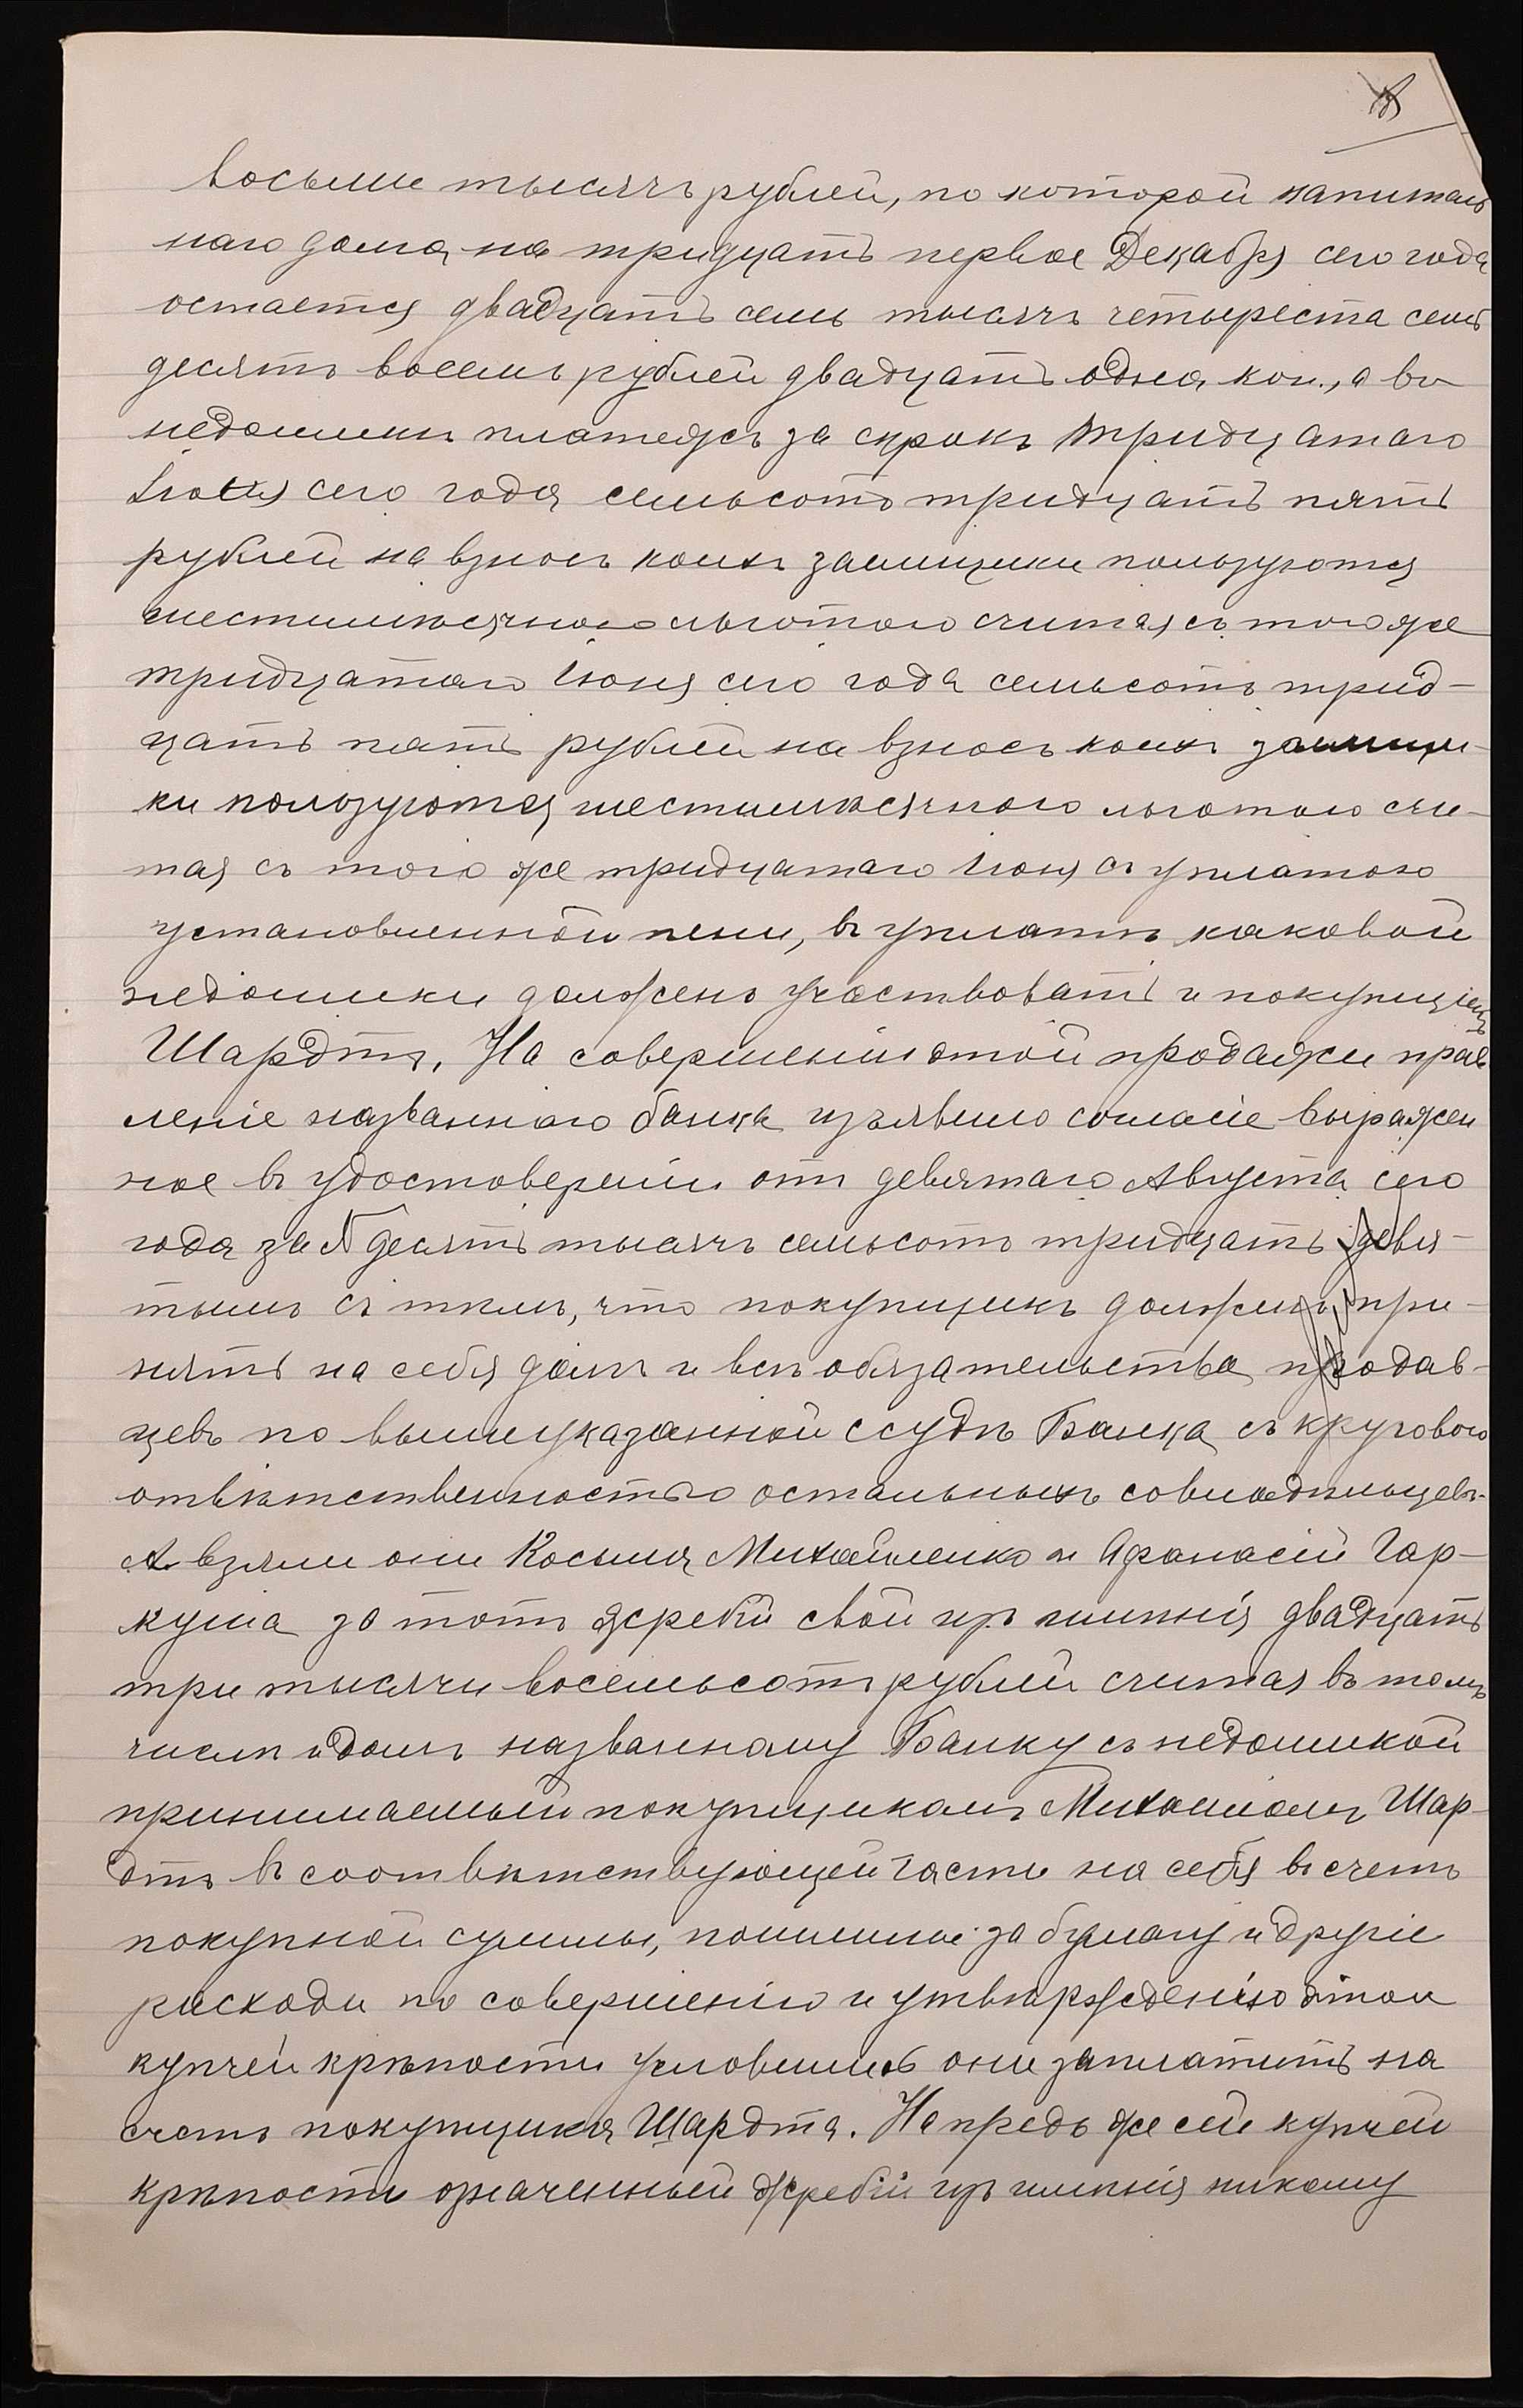 восемь тысячъ рублей, по которой капиталь
наго долга, на тридцать первое Декабря сего года
остается двадцать семь тысячъ четыреста семь
десятъ восемь рублей двадцать одна коп., а въ
недоимкѣ платежъ за срокъ тридцатаго
Іюня сего года семьсотъ тридцать пять
рублей на взносъ коихъ заемщики пользуются
шестимѣсячною льготою считая съ того же
тридцатаго Іюня сего года семьсотъ трид-
цать пять рублей на взносъ коихъ заемщи-
ки пользуются шестимѣсячною льготою счи-
тая съ того же тридцатаго Іюня съ уплатою
установленной пени, въ уплатѣ каковой
недоимки долженъ участвовать и покупщикъ
Шардтъ. На совершеніи этой продажи прав
леніе названнаго банка изъявило согласіе выражен
ное въ удостовереніи отъ девятаго Августа сего
года за № десять тысячъ семьсотъ тридцать девя-
тымъ съ тѣмъ, что покупщикъ долженъ при-
нять на себя долгъ и всѣ обязательства продав-
цевъ по вышеуказанной ссудѣ Банка съ круговою
отвѣтственностью остальныхъ совладѣльцевъ.
А взяли они Косьма Михайленко и Афанасій Гар-
куша за тотъ жребій свой изъ имѣнія двадцать
три тысячи восемьсотъ рублей считая въ томъ
числѣ и долгъ названному Банку съ недоимкой
принимаемый покупщикомъ Михаиломъ Шар-
дтъ въ соотвѣтствующей части на себя въ счетъ
покупной суммы, пошлины за бумагу и другіе
расходи по совершенію и утвержденію этой
купчей крѣпости условились они заплатить на
счетъ покупщика Шардта. Напредь же сей купчей
крѣпости означенный жребій изъ имѣнія никому